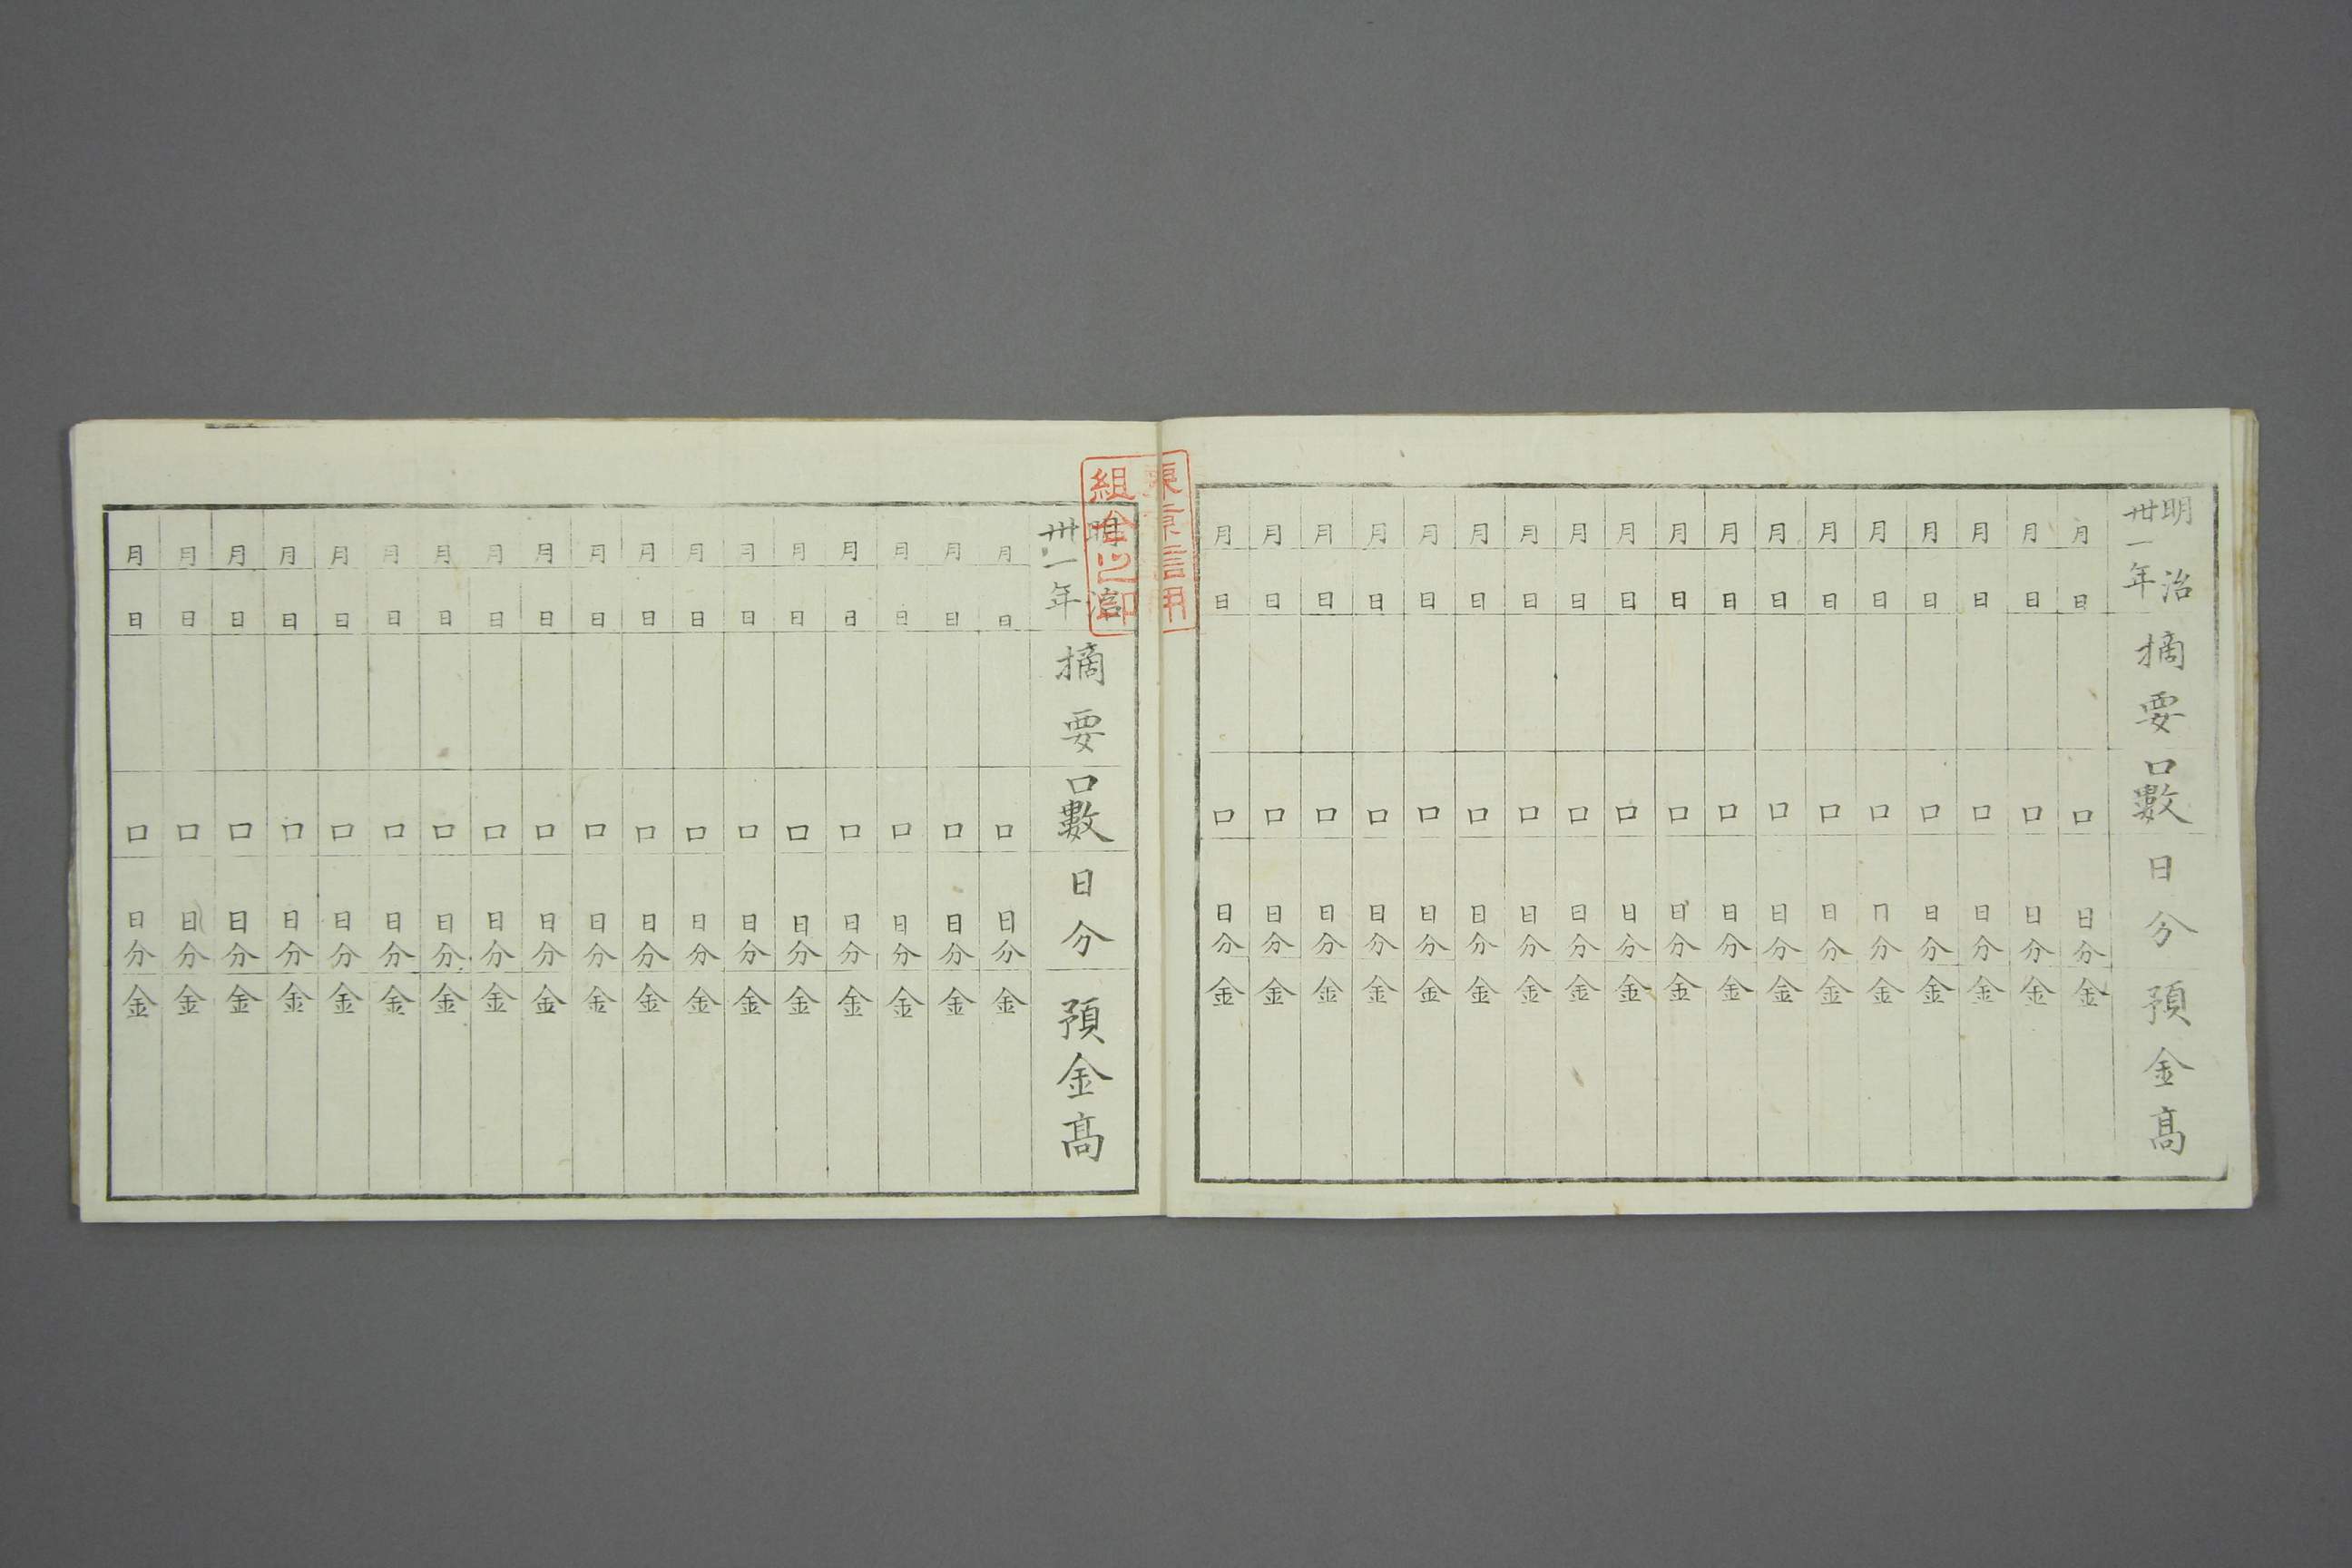 明治卅一年 摘要 口數 日分 預金高
月 日 口 日分 金
月 日 口 日分 金
月 日 口 日分 金
月 日 口 日分 金
月 日 口 日分 金
月 日 口 日分 金
月 日 口 日分 金
月 日 口 日分 金
月 日 口 日分 金
月 日 口 日分 金
月 日 口 日分 金
月 日 口 日分 金
月 日 口 日分 金
月 日 口 日分 金
月 日 口 日分 金
月 日 口 日分 金
月 日 口 日分 金
月 日 口 日分 金
東京信用
組合之印
明治卅一年 摘要 口數 日分 預金高
月 日 口 日分 金
月 日 口 日分 金
月 日 口 日分 金
月 日 口 日分 金
月 日 口 日分 金
月 日 口 日分 金
月 日 口 日分 金
月 日 口 日分 金
月 日 口 日分 金
月 日 口 日分 金
月 日 口 日分 金
月 日 口 日分 金
月 日 口 日分 金
月 日 口 日分 金
月 日 口 日分 金
月 日 口 日分 金
月 日 口 日分 金
月 日 口 日分 金